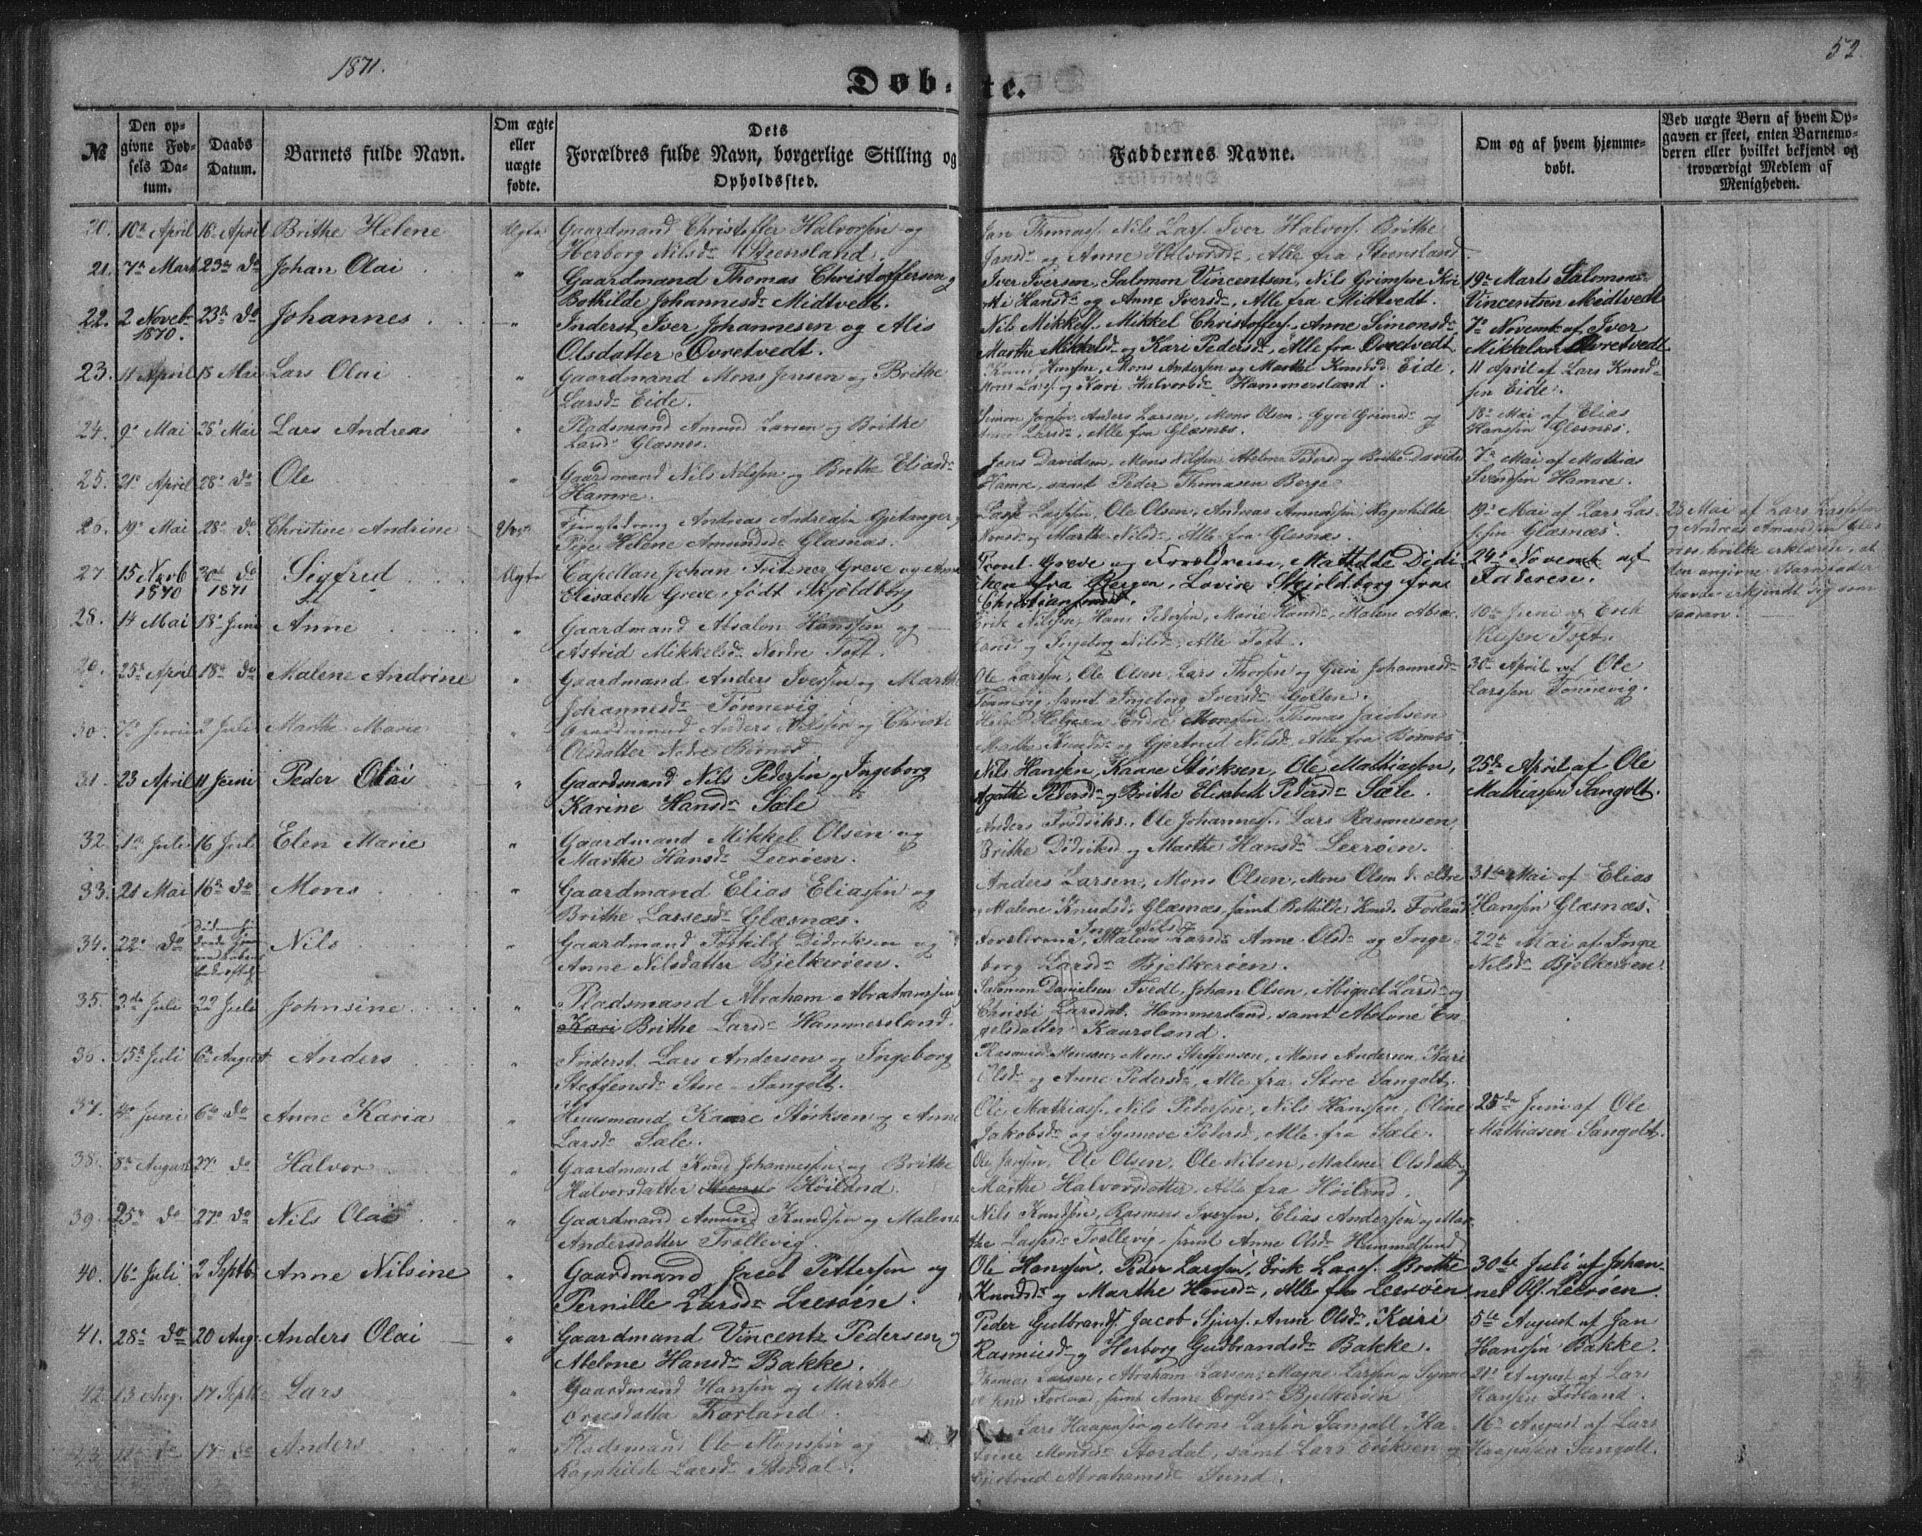 1871.
52
Døbte.
№
Den op-
givne Fød-
sels Da-
tum.
Daabs
Datum.
Barnets fulde Navn.
Om ægte
eller
uægte
fødte.
Dets
Forældres fulde Navn, borgerlige Stilling og
Opholdssted.
Faddernes Navne.
Om og af hvem hjemme-
døbt.
Ved uægte Børn af hvem Op-
gaven er skeet, enten Barnemo-
deren eller hvilket bekjendt og
troværdigt Medlem af
Menigheden.
20. 10de April 16de April Brithe Helene Ægte Gaardmand Christoffer Halvorsen og
Herborg Nilsdr Steensland
Jan Thomass. Nils Lars. Iver Halvors. Brithe
Jansdr og Anne Halvorsdr, Alle fra Steensland
21. 7de Mart 23de Do Johan Olai " Gaardmand Thomas Christoffersen og
Bothilde Johannesdr Midtvedt.
Iver Iversen, Salomon Vincentsen, Nils Grimsen
Hansdr og Anne Iversdr, Alle fra Midtvedt.
19de Marts Salomon
Vincentsen Midtvedt
22. 2 Novbr 23de Do Johannes " Inderst Iver Johannesen og Alis
1870. Olsdatter Øvretvedt.
Nils Mikkels. Mikkel Christoffers. Anne Simonsdr
Marthe Mikkelsdr og Kari Pedersdr, Alle fra Øvretvedt
7de Novembr af Iver
Mikkelsen Øvretvedt
23. 11 April 18 Mai Lars Olai " Gaardmand Mons Jensen og Brithe
Larsdr Eide.
Knud Hansen, Mons Andersen og Marthe Knudsdr Eide,
Mons Lars. og Kari Halvorsdr Hammersland.
11 April af Lars Knud-
sen Eide.
24. 9de Mai 28de Mai Lars Andreas " Pladsmand Amund Larsen og Brithe
Larsdr Glæsnes.
Simon Jansen, Anders Larsen, Mons Olsen, Gyri Grimsdr og
Anne Larsdr, Alle fra Glæsnes.
18de Mai af Elias
Hanssen Glæsnes.
25. 21de April 28de Do Ole " Gaardmand Nils Nilssen og Brithe Eliasdr
Hamre.
Jens Davidsen, Mons Nilssen, Abelone Pedersd og Brithe Davidsd
Hamre, samt Peder Thomasen Berge
7de Mai af Mathias
Svendsen Hamre.
26. 19de Mai 28de Do Christine Andrine Uægte Andreas Andreassen Gjetanger og
Pige Helene Amundsdr Glæsnæs.
Lars Larssen, Ole Olsen, Andreas Amundsen, Ragnhilde
Monsdr og Marthe Nilsdr, Alle fra Glesnes.
19de Mai af Lars Lar-
sen Glæsnæs.
23 Mai af Lars Larssen
og Andreas Amundsen Glæs-
nes, hvilke erklærer, at
den angivne Barnefader
havde erkjendt sig som
saadan.
27 15 Novb 30te Do Sigfred Ægte Capellan Johan Fritzner Greve og Anne
1870 1871 Elisabeth Greve, født Skjöldborg
Provst Greve og Forældrene, Mathilde Didi-
ken fra Bergen, Lovise Skjoldborg fra
Christiansund.
24de Novembr af
Faderen.
28. 14 Mai 18de Juni Anne " Gaardmand Absalon Hanssen og
Astrid Mikkelsdr Nordre Toft.
Erik Nilssen, Hans Pedersen, Marie Knudsdr, Malene Absa-
lonsdr og Ingeborg Nilsdr, Alle Toft.
10de Juni af Erik
Nilssen Toft.
29. 25de April 18de Do Malene Andrine " Gaardmand Anders Iverssen og Marthe
Johannesdr Tønnevig
Ole Larssen, Ole Olsen, Lars Thorsen og Guri Johannesdr
Tønnevig, samt Ingeborg Iversdr Golten.
30te April af Ole
Larssen Tønnevig.
30. 7de Juni 2 Juli Marthe Marie " Gaardmand Anders Nilssen og Christi
Olsdatter Nedre Børnes
Helgesen, Endre Monssen, Thomas Jacobsen
Marthe Knudsdr og Gjertrud Nilsdr, Alle fra Børnes.
31. 23 April 11 Juni Peder Olai " Gaardmand Nils Pedersen og Ingeborg
Karine Hansdr Sæle
Nils Hansen, Kaare Størksen, Ole Mathiassen,
Agathe Pedersdr og Brithe Elisabeth Pedersdr Sæle.
25de April af Ole
Mathiassen Sangolt.
32. 1de Juli 16 Juli Elen Marie " Gaardmand Mikkel Olsen og
Marthe Hansdr Leerøen.
Anders Fredriks., Ole Johannes., Lars Rasmusen,
Brithe Didriksd og Marthe Hansdr Leerøen.
33. 21 Mai 16de Do Mons " Gaardmand Elias Eliassen og
Brithe Larsesdr Glæsnæs.
Anders Larsen, Mons Olsen, Mons Olsen d. eldre
og Malene Knudsdr Glæsnæs, samt Bothilde Knudsdr Forland
31te Mai af Elias
Hanssen Glæsnæs.
34. 22de Do Nils " Gaardmand Torkild Didriksen og
Anne Nilsdatter Bjelkerøen.
Inga Nilsd
Forældrene, Malene Larsdr Anne Olsdr og Inge-
borg Larsdr Bjelkerøen.
22de Mai af Inga
Nilsdr Bjelkerøen.
35. 3de Juli 22 Juli Johnsine " Pladsmand Abraham Abrahamsen og
Kari Brithe Larsdr Hammersland.
Salomon Danielsen Tvedt, Johan Olsen, Abigael Larsdr og
Christi Larsdat. Hammersland, samt Abelone En-
gelsdatter Kausland.
36. 15de Juli 6te August Anders " Inderst Lars Andersen og Ingeborg
Steffensdr Store-Sangolt.
Rasmus Monsen, Mons Steffensen, Mons Andersen, Kari
Olsdr og Anne Pedersdr, Alle fra Store Sangolt.
37. 4de Juni 6te Do Anne Karia " Huusmand Kaare Størksen og Anne
Larsdr Sæle.
Ole Mathiass. Nils Pedersen, Nils Hanssen, Oline
Jakobsdr og Synneve Pedersdr, Alle fra Sæle.
25de Juni af Ole
Mathiasen Sangolt.
38. 8de August 27de Do Halvor " Gaardmand Knud Johannessen og Brithe
Halvorsdatter Høiland.
Ole Jansen, Ole Olsen, Ole Nilsen, Malene Olsdatt. og
Marthe Halvorsdatter, Alle fra Høiland.
39. 25de do 27de Do Nils Olai " Gaardmand Amund Knudssen og Malene
Andersdatter Trællevig
Nils Knudssen, Rasmus Iversen, Elias Anderssen og Mar-
the Larsdr Trællevig, samt Anne Olsdr Hummelsund
40. 16de Juli 2 Septb. Anne Nilsine " Gaardmand Jacob Pettersen og
Pernille Larsdr Leerøen.
Ole Hanssen, Peder Larssen, Erik Lars. Brithe
Knudsdr og Marthe Hansdr, Alle fra Leerøen
30te Juli af Johan-
nes Ols. Leerøen.
41. 28de Do 20 Aug. Anders Olai " Gaardmand Vincentz Pedersen og
Abelone Hansdr Bakke.
Peder Gudbrands. Jacob Sjurs. Anne Olsdr, Kari
Rasmusdr og Herborg Gudbrandsdr Bakke.
5te August af Jan
Hanssen Bakke.
42 13 Aug. 17 Septbr Lars " Gaardmand Hanssen og Marthe
Forland.
Thomas Larsen, Abraham Larsen, Magne Larssen og Synneve
Forland, samt Anne Bjelkerøen
21de August af Lars
Hanssen Forland.
43. do 17de do Anders " Pladsmand Ole Monssen og
Ragnhilde Larsdr Stordal.
Lars Haagensen og Mons Larsen Sangolt, Ka-
trine Monsdr Stordal, samt Lars Eriksen og
Gjertrud Abrahamsdr Sund.
16de August af Lars
Haagensen Sangolt.